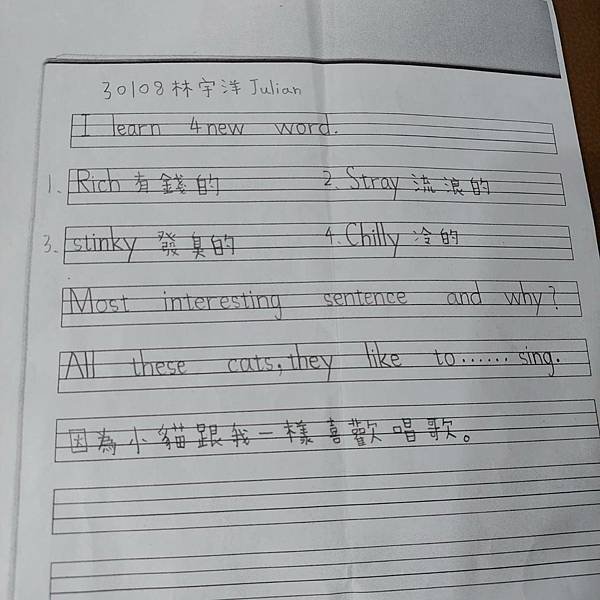 30108林宇洋Julian
I learn 4 new word.
1. Rich 有錢的 2. Stray 流浪的
3. stinky 發臭的 4. Chilly 冷的
Most interesting sentence and why?
All these cats, they like to...... sing.
因為小貓跟我一樣喜歡唱歌。